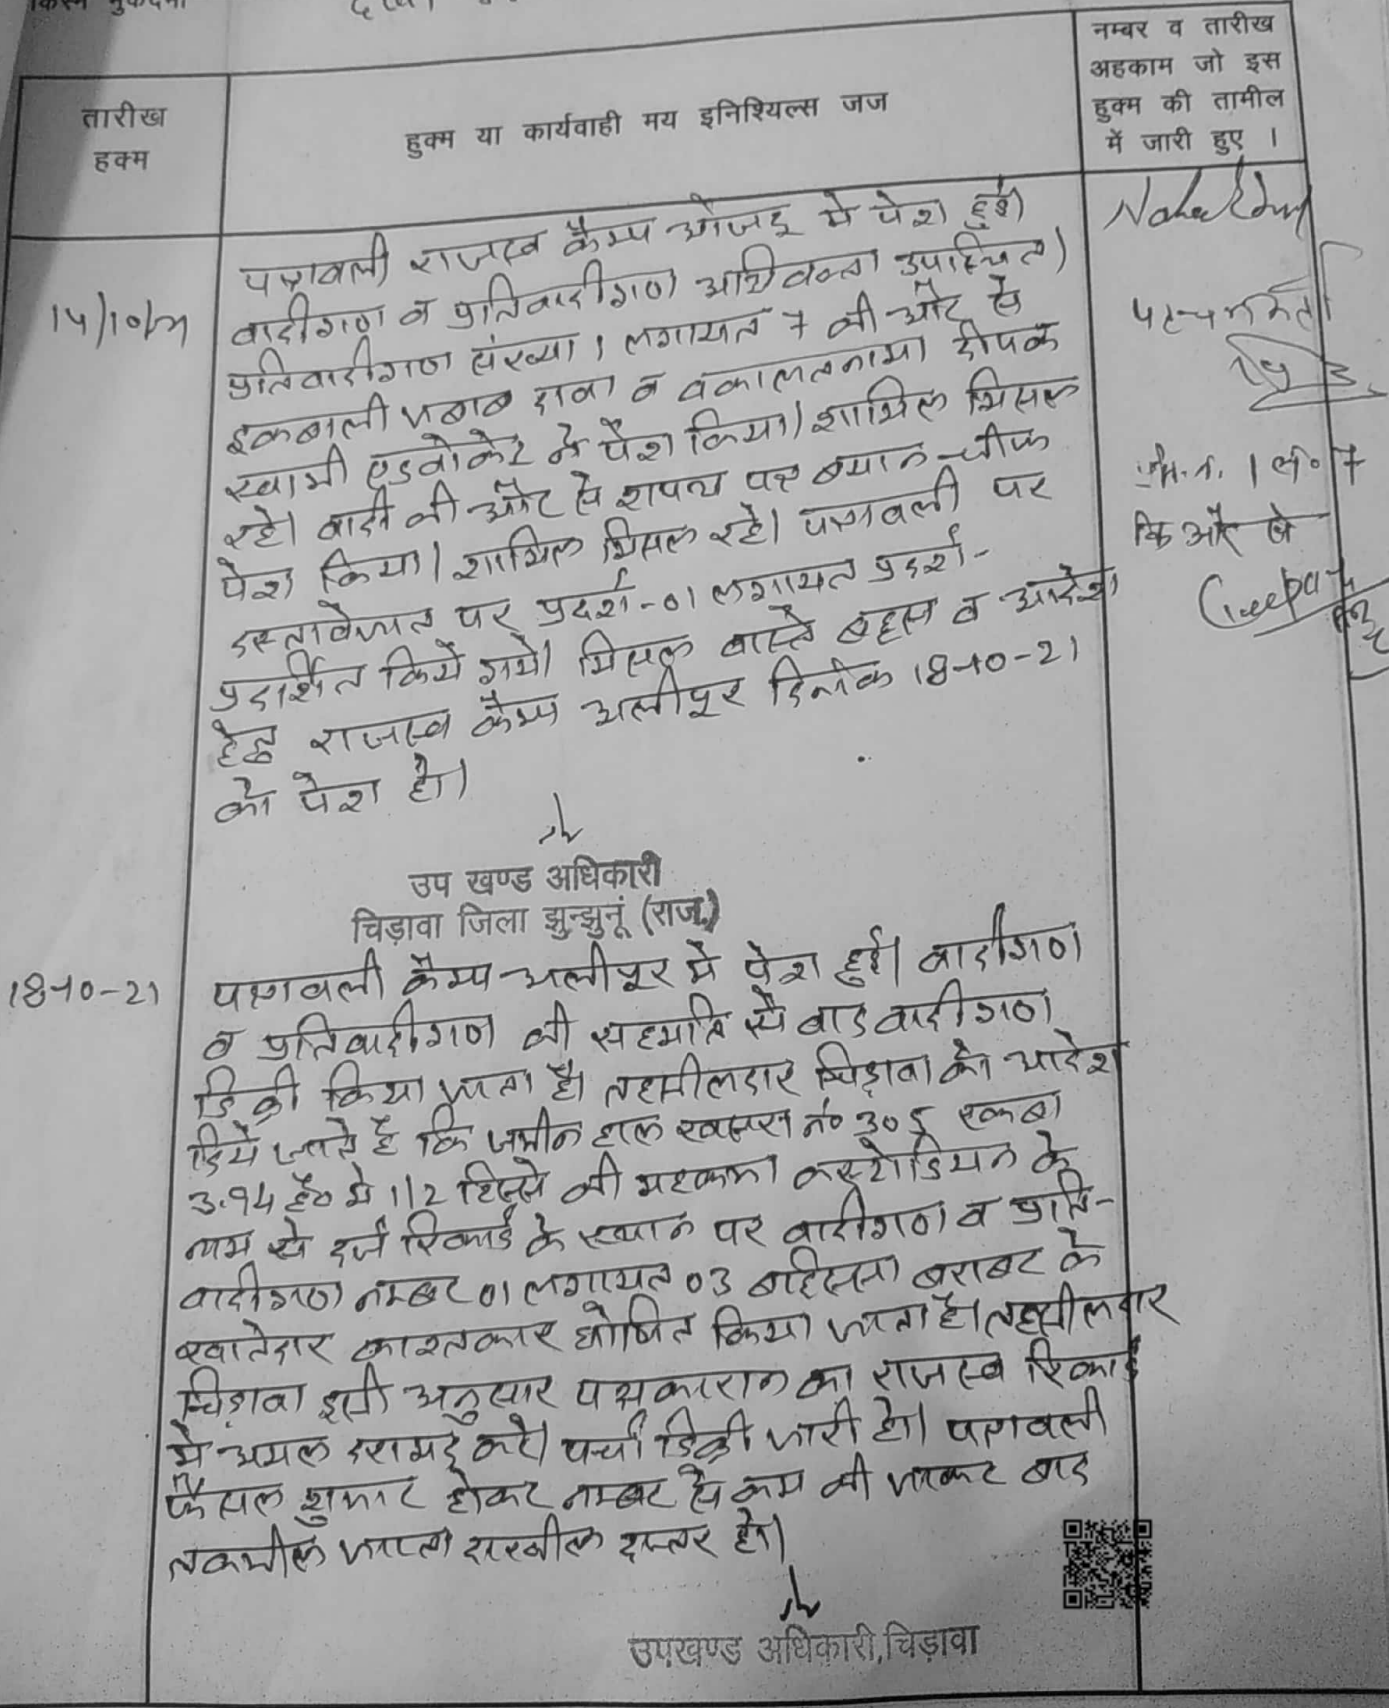 किस्म मुकदमा
तारीख
हक्म
हुक्म या कार्यवाही मय इनिश्यिल्स जज
नम्बर व तारीख
अहकाम जो इस
हुक्म की तामील
में जारी हुए ।
14/10/21
पत्रावली राजस्व कैम्प ओजटू मे पेश हुई।
वादीगण व प्रतिवादीगण अभिवक्ता उपस्थित।
प्रतिवादीगण संख्या 1 लगायत 7 की और से
इकबाली जबाब दावा व वकालतनामा दीपक
स्वामी एडवोकेट ने पेश किया। शामिल मिसल
रहे। वादी की और से शपथ पत्र बयान चीफ
पेश किया। शामिल मिसल रहे। पत्रावली पर
दस्तावेजात पर प्रदर्श-01 लगायत प्रदर्श-
प्रदर्शित किये गये। मिसल वास्ते बहस व आदेश
हेतु राजस्व कैम्प अलीपुर दिनांक 18-10-21
को पेश हो।
उप खण्ड अधिकारी
चिड़ावा जिला झुन्झुनूं (राज.)
1 ल॰ 7
कि और से
18-10-21
पत्रावली कैम्प अलीपुर मे पेश हुई। वादीगण
व प्रतिवादीगण की सहमति से वाद वादीगण
डिक्री किया जाता है। तहसीलदार चिड़ावा को आदेश
दिये जाते है कि जमीन हाल खसरा नं० 305 रकबा
3.94 है० मे 1/2 हिस्से की महकमा कस्टोडियन के
नाम से दर्ज रिकार्ड के स्थान पर वादीगण व प्रति-
वादीगण नम्बर 01 लगायत 03 बहिस्सा बराबर के
खातेदार काश्तकार घोषित किया जाता है। तहसीलदार
चिड़ावा इसी अनुसार पक्षकारान का राजस्व रिकार्ड
मे अमल दरामद करे। पर्चा डिक्री जारी हो। पत्रावली
फैसल शुमार होकर नम्बर से कम की जाकर बाद
तकमील जाप्ता दाखील दफ्तर हो।
उपखण्ड अधिकारी,चिड़ावा